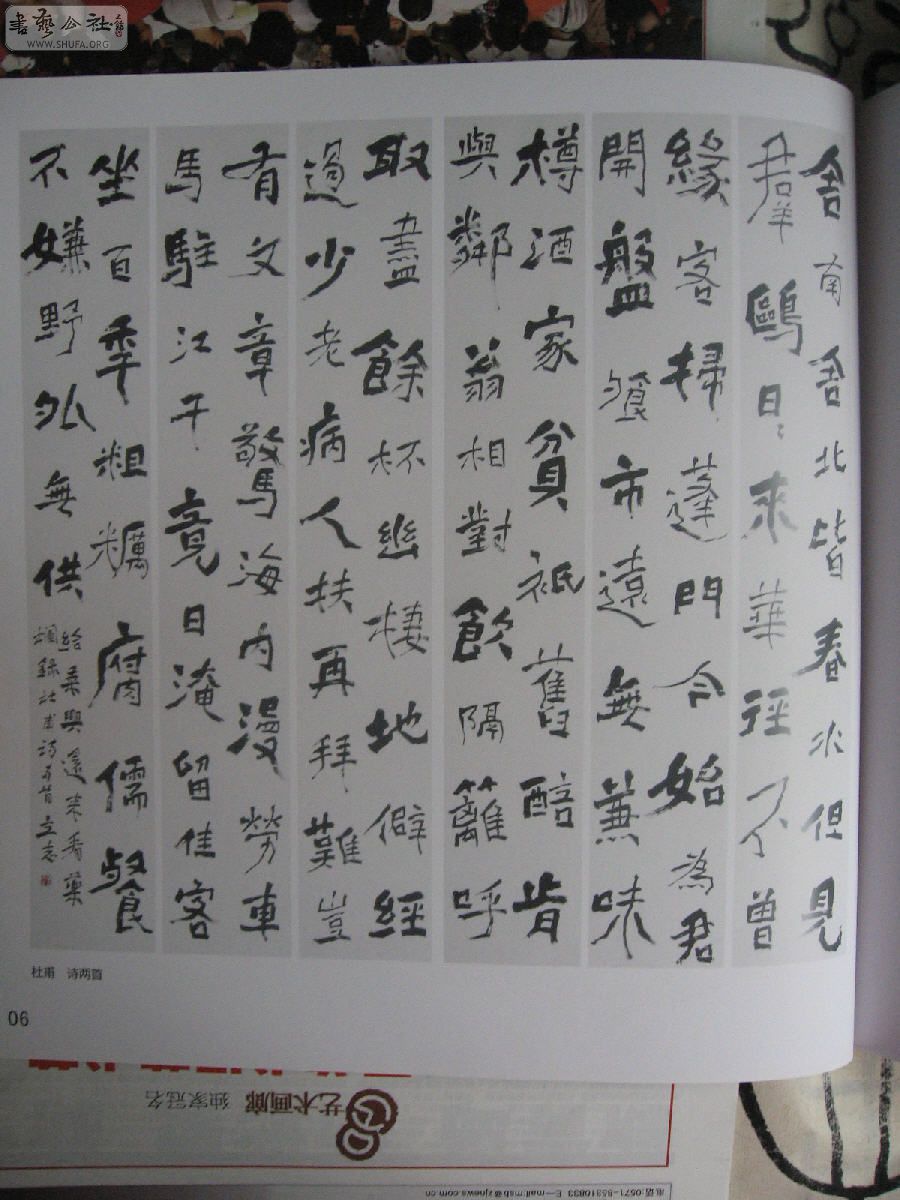 書藝公社
WWW.SHUFA.ORG
舍南舍北皆春水但見
羣鷗日〻來華徑不曾
緣客掃蓬門今始為君
開盤飧市遠無兼味
樽酒家貧祇舊醅肯
與鄰翁相對飲隔籬呼
取盡餘杯幽棲地僻經
過少老病人扶再拜難豈
有文章驚海內漫勞車
馬駐江干竟日淹留佳客
坐百年粗糲腐儒餐
不嫌野外無供
給乘興還來看藥
欄錄杜甫詩二首立志
杜甫 诗两首
06
艺术画廊 独家冠名
电话:0571-85310833 E-mail:msb@zjnews.com.cn